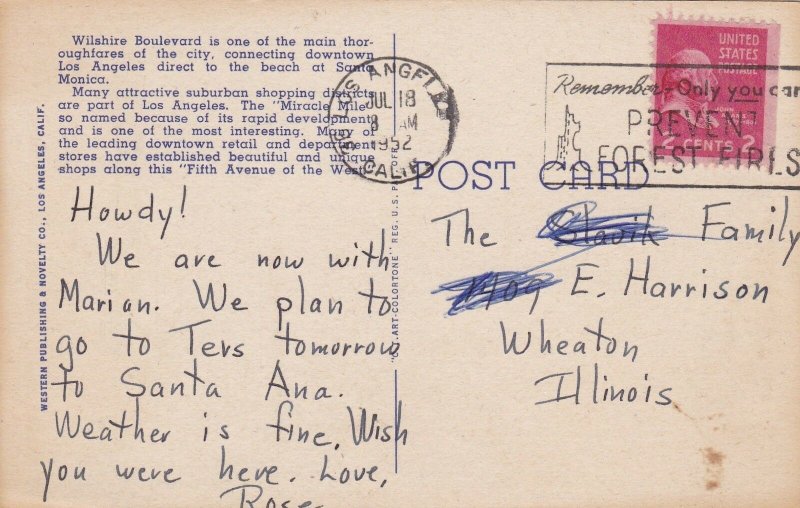 Wilshire Boulevard is one of the main thor-
oughfares of the city, connecting downtown
Los Angeles direct to the beach at Santa
Monica.
Many attractive suburban shopping districts
are part of Los Angeles. The "Miracle Mile"
so named because of its rapid development
and is one of the most interesting. Many of
the leading downtown retail and department
stores have established beautiful and unique
shops along this "Fifth Avenue of the West."
WESTERN PUBLISHING & NOVELTY CO., LOS ANGELES, CALIF.
LOS ANGELES
JUL 18
8 AM
1952
CALIF.
UNITED
STATES
POSTAGE
JOHN
2 CENTS 2
Remember-Only you can
PREVENT
FOREST FIRES
POST CARD
ART-COLORTONE" REG. U.S. PAT. OFF.
Howdy!
We are now with
Marian. We plan to
go to Ters tomorrow
to Santa Ana.
Weather is fine. Wish
you were here. Love,
Rose
The Family
E. Harrison
Wheaton
Illinois